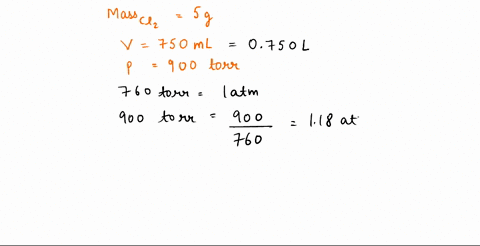 Mass Cl2 = 5g
V = 750 mL = 0.750 L
P = 900 torr
760 torr = 1 atm
900 torr = 900/760 = 1.18 at